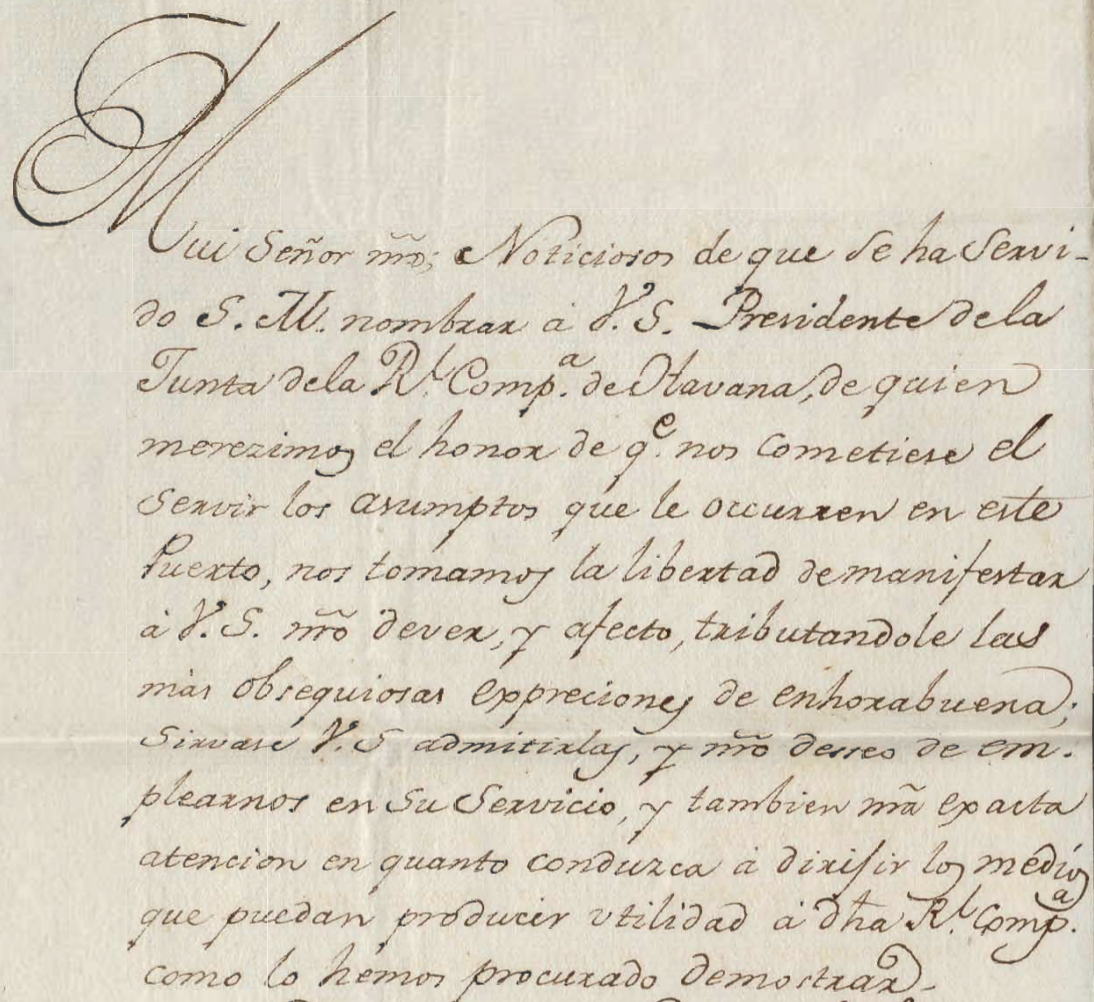 Mui Señor mõ; Noticiosos de que se ha servi-
do S. M. nombrar à V. S. Presidente de la
Junta dela Rl. Compa. de Havana, de quien
merezimos el honor de qe. nos cometiese el
servir los asumptos que le occurren en este
Puerto, nos tomamos la libertad de manifestar
à V. S. mo dever, y afecto, tributandole las
màs obsequiosas expreciones de enhorabuena;
sirvase V. S admitirlas, y mo desseo de em-
plearnos en su servicio, y tambien ma exacta
atencion en quanto conduzca à dirisir los medios
que puedan producir vtilidad à dha Rl. Compa.
como lo hemos procurado demostrar.